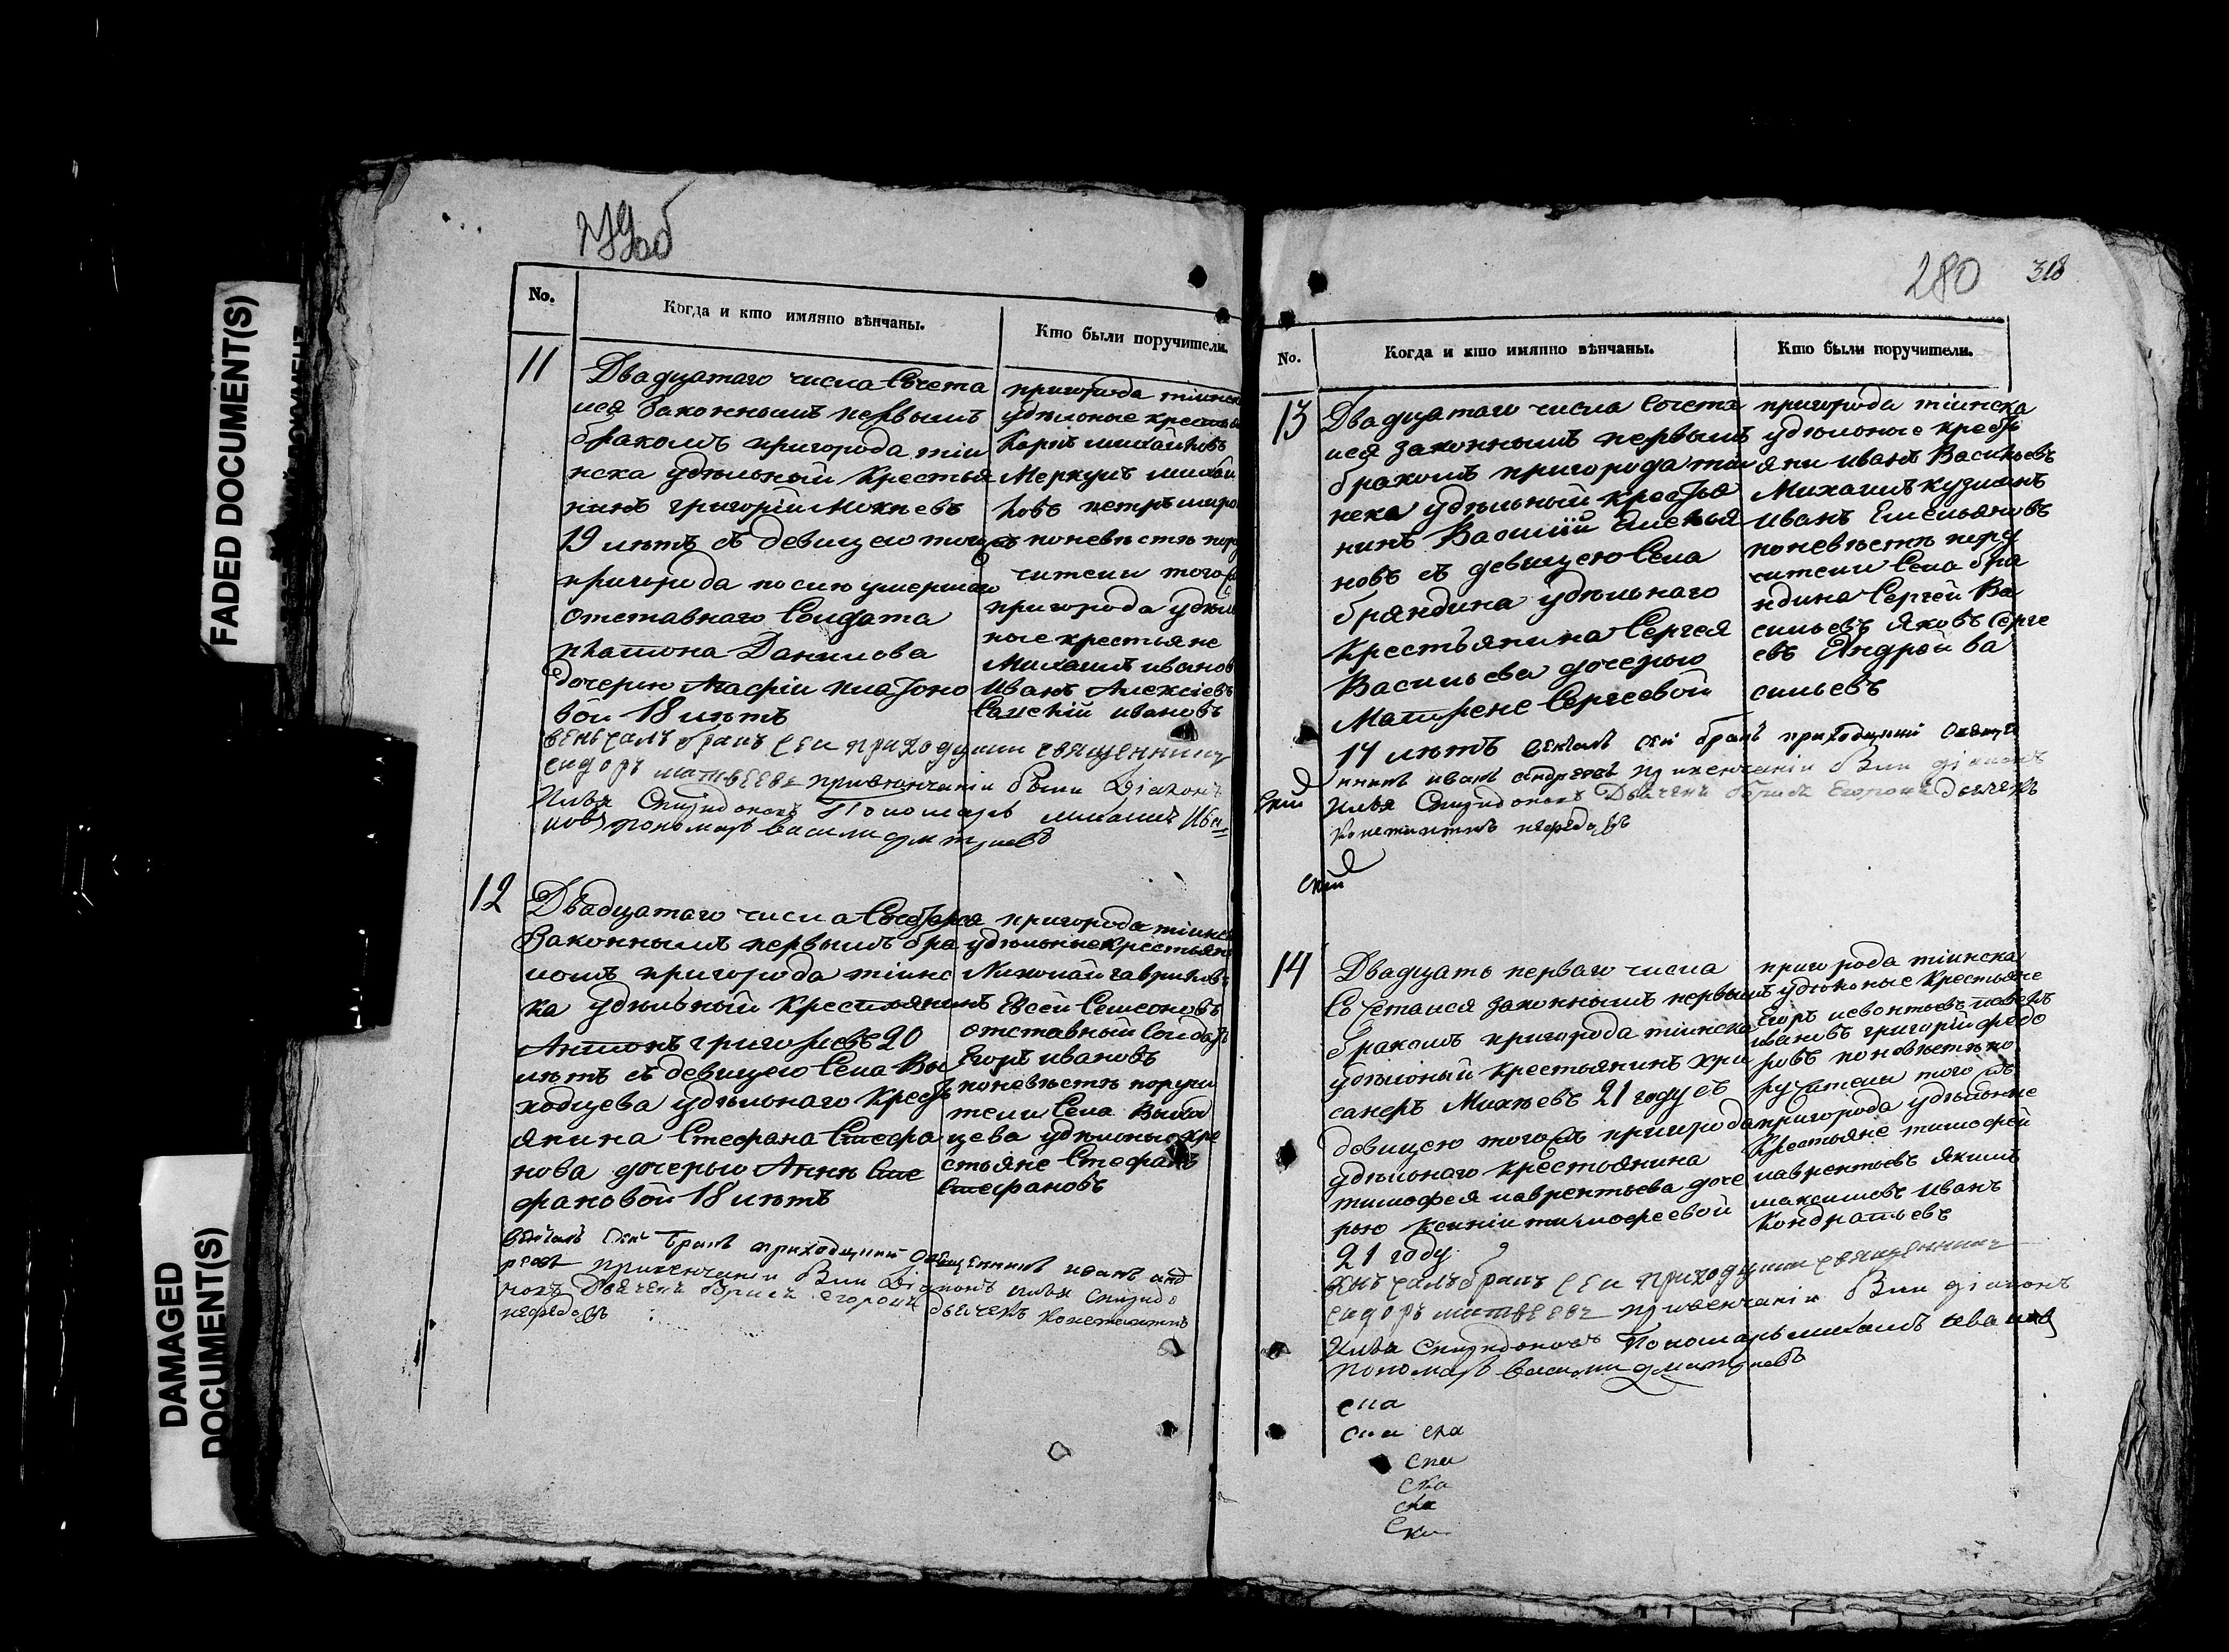 FADED DOCUMENT(S)
DAMAGED
DOCUMENT(S)
279об
No.
Когда и кто имянно вѣнчаны.
Кто были поручители.
11
Двадцатаго числа Сочета
лся Законнымъ первымъ
бракомъ пригорода тіи
нска удѣльной Крестья
нинъ григорій Михѣевъ
19 лѣтъ съ девицею тогожъ
пригорода послѣ умершаго
отставнаго Солдата
платона Данилова
дочерью Агафіи платоно
вой 18 лѣтъ
пригорода тіинска
удѣльные крестья
Карпъ михайловъ
Меркулъ михай
ловъ петръ миро
поневѣстѣ пору
чители тогожъ
пригорода удѣль
ные крестьяне
Михаилъ иванов
Иванъ Алексіевъ
иванов
венчалъ бракъ сеи приходскии священникъ
сидоръ матвеевъ привѣнчаніи были Діаконъ
Илья Спиридоновъ Пономарь михаилъ Ива
новъ пономарь василии дмитриевъ
12
Двадцатаго числа Сочетался
Законнымъ первымъ бра
комъ пригорода тіинс
ка удѣльный Крестьянинъ
Антонъ григорьевъ 20
лѣтъ съ девицею Села Вы
ходцева удѣльнаго Крестъ
янина Стефана Стефа
нова дочерью Аннѣ Сте
фановой 18 лѣтъ
пригорода тіинска
удѣльные Крестьяне
Николай гавриловъ
Евсей Семеновъ
отставный Солдатъ
Егоръ ивановъ
поневѣстѣ поручи
тели Села Выход
цева удѣльные кре
стьяне Стефанъ
Стефановъ
венчалъ сей бракъ приходский священникъ иванъ анд
реевъ привенчаніи были Діаконъ илья Спиридо
новъ Дьячекъ борисъ егоровъ Дьячекъ Констаитинъ
нефедовъ
280
318
No.
Когда и кто имянно вѣнчаны.
Кто были поручители.
13
Двадцатаго числа Сочета
лся законнымъ первымъ
бракомъ пригорода тіи
нска удѣльный крестья
нинъ Василій Емелья
новъ съ девицею Села
бряндина удѣльнаго
Крестьянина Сергея
Васильева дочерью
Матрене Сергеевой
17 лѣтъ
пригорода тіинска
удѣльные крестъ
яни иванъ Васильевъ
Михаилъ кузминъ
иванъ Емельяновъ
поневѣстѣ пору
чители Села бря
ндина Сергей Ва
сильевъ Яковъ Серге
евъ Андрей ва
сильевъ
венчалъ сей бракъ приходский священ
никъ иванъ андреевъ привенчаніи были діаконъ
илья Спиридоновъ Дьячекъ борисъ Егоровъ дьячекъ
Констаитинъ нефедовъ
14
Двадцать перваго числа
Сочетался законнымъ первымъ
бракомъ пригорода тіинска
удѣльный крестьянинъ хри
санфъ Михѣевъ 21 году съ
девицею тогожъ пригорода
удѣльнаго крестьянина
тимофея лаврентьева доче
рью Ксеніи тимофеевой
21 году
пригорода тіинска
удѣльные Крестьяне
Егоръ леонтьевъ
ивановъ григорій федо
ровъ поневѣстѣ по
ручители тогожъ
пригорода удѣльные
Крестьяне тимофей
лаврентьевъ Якимъ
максимовъ Иванъ
Кондратьевъ
венчалъ бракъ сеи приходскии священникъ
сидоръ матвеевъ привенчаніи были діаконъ
Илья Спиридоновъ Пономарь михаилъ ивановъ
Пономарь василии дмитриевъ